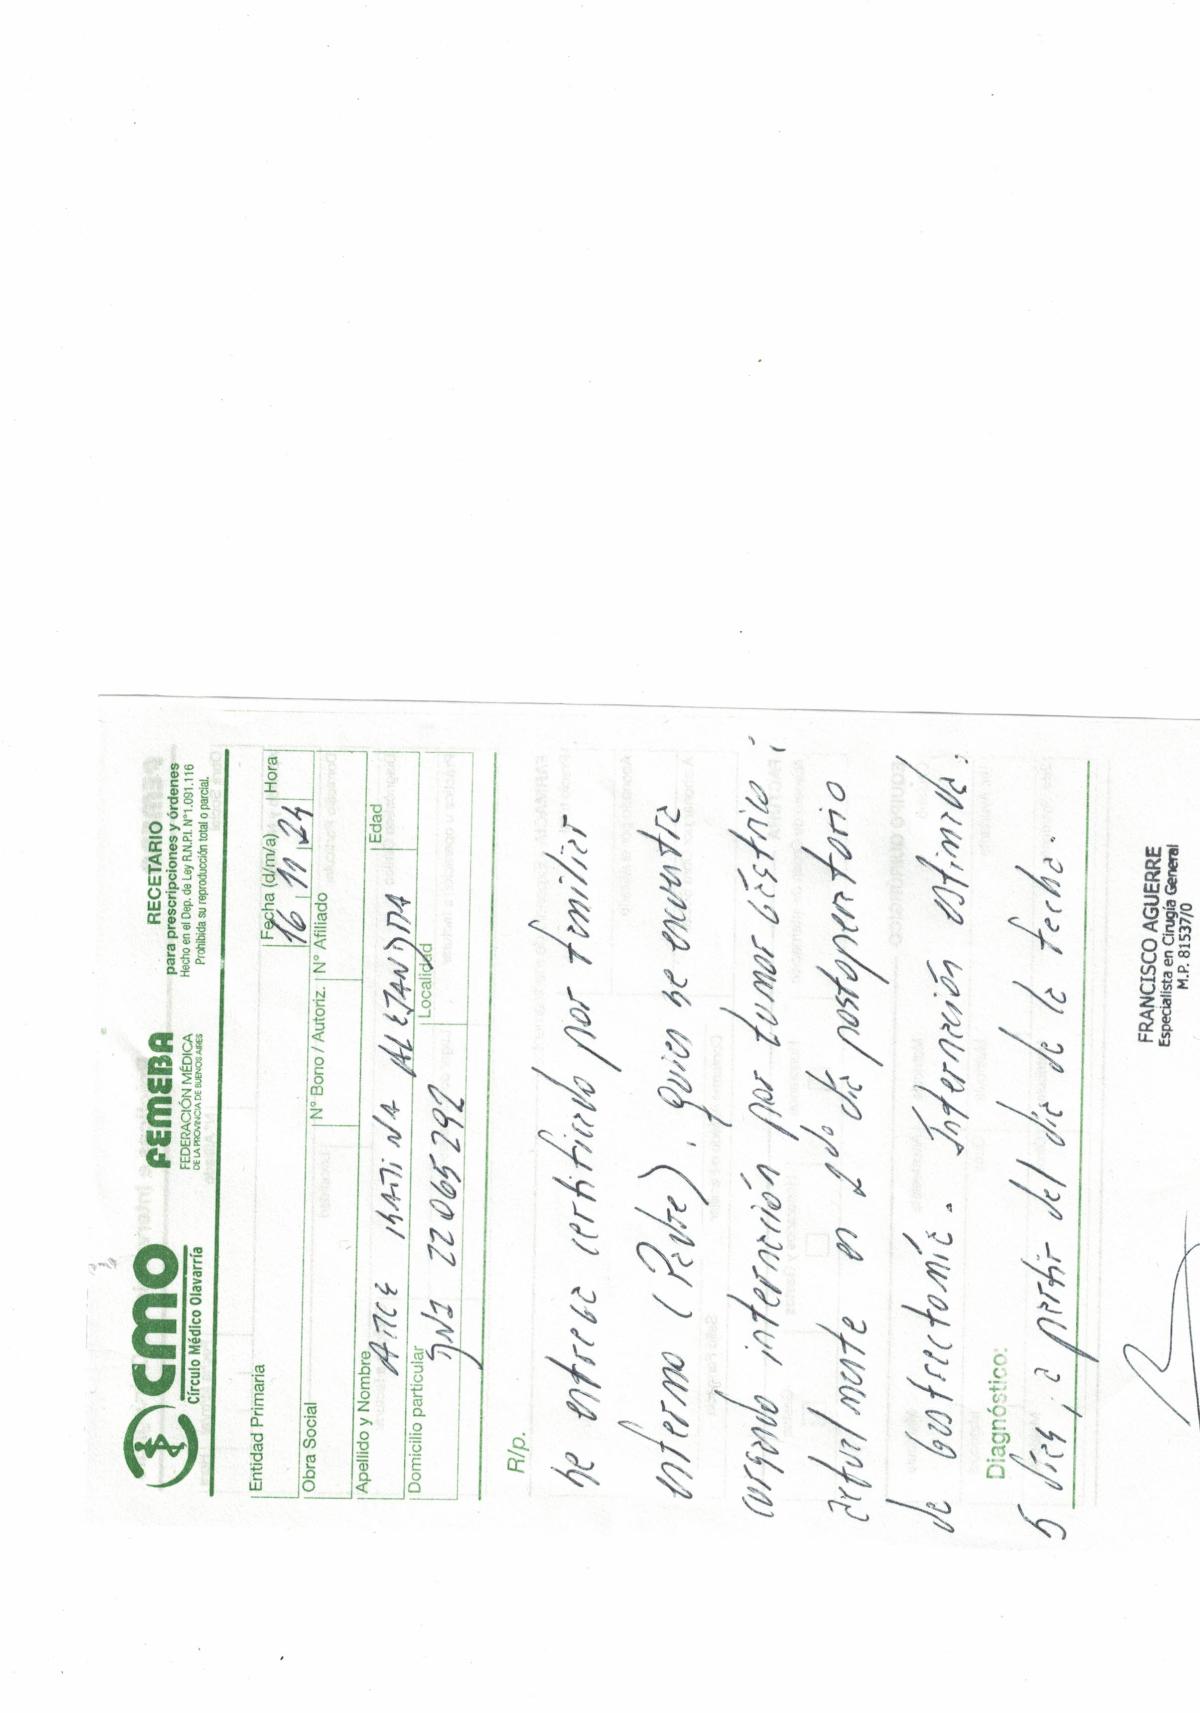 CMO
Círculo Médico Olavarría
FEMEBA
FEDERACIÓN MÉDICA
DE LA PROVINCIA DE BUENOS AIRES
RECETARIO
para prescripciones y órdenes
Hecho en el Dep. de Ley R.N.P.I. Nº1.091.116
Prohibida su reproducción total o parcial.
Entidad Primaria
Fecha (d/m/a) Hora
16 11 24
Obra Social Nº Bono / Autoriz. Nº Afiliado
Apellido y Nombre Edad
ARCE KARINA ALEJANDRA
Domicilio particular Localidad
DNI 22065292
R/p.
Se entrega certificado por familiar
enfermo (Padre), quien se encuentra
cursando internación por tumor gástrico
actualmente en 2do día postoperatorio
de Gastrectomía. Internación estimada:
Diagnóstico:
5 días, a partir del día de la fecha.
FRANCISCO AGUERRE
Especialista en Cirugía General
M.P. 81537/0